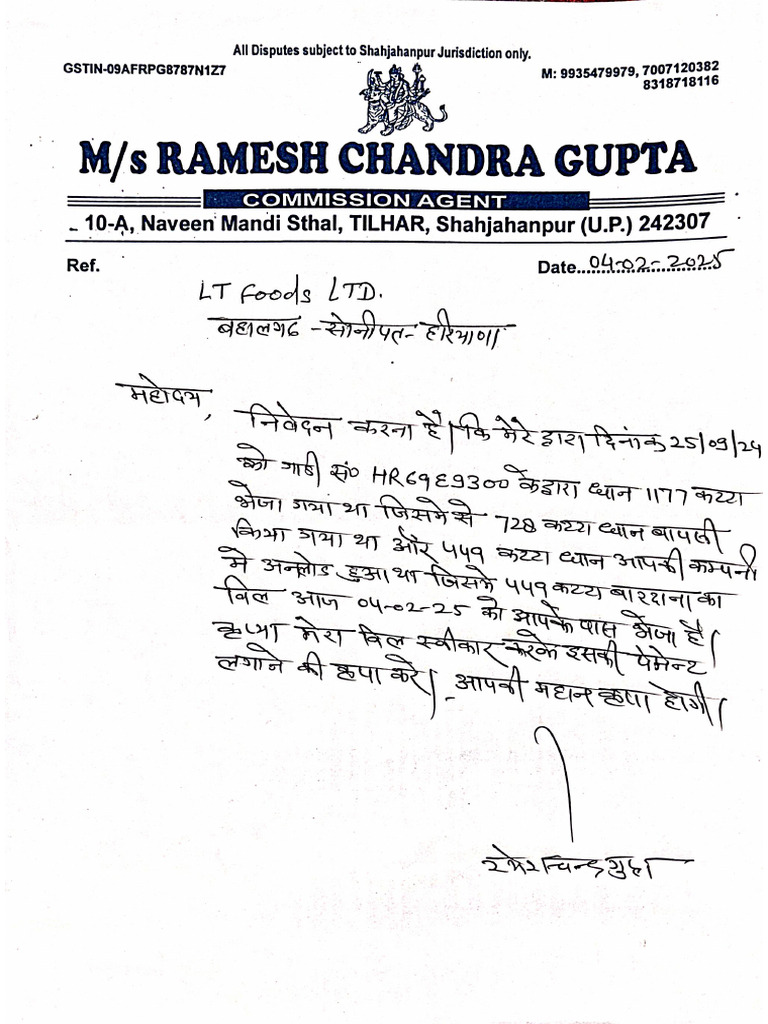 All Disputes subject to Shahjahanpur Jurisdiction only.
GSTIN-09AFRPG8787N1Z7
M: 9935479979, 7007120382
8318718116
M/s RAMESH CHANDRA GUPTA
COMMISSION AGENT
10-A, Naveen Mandi Sthal, TILHAR, Shahjahanpur (U.P.) 242307
Ref.
Date...04-02-2025
LT Foods LTD.
बहालगढ - सोनीपत - हरियाणा
महोदय,
निवेदन करना है। कि मेरे द्वारा दिनांक 25/09/24
को गाडी सं० HR69E9300 के द्वारा धान 1177 कट्टा
भेजा गया था जिसमे से 728 कट्टा धान वापसी
किया गया था और ५५१ कट्टा धान आपकी कम्पनी
मे अनलोड हुआ था जिसके ५५१ कट्टा बारदाना का
विल आज 04-02-25 को आपके पास भेजा है।
कृप्या मेरा विल स्वीकार करके इसकी पेमेन्ट
लगाने की कृपा करे। आपकी महान कृपा होगी।
रमेश चन्द्र गुप्ता